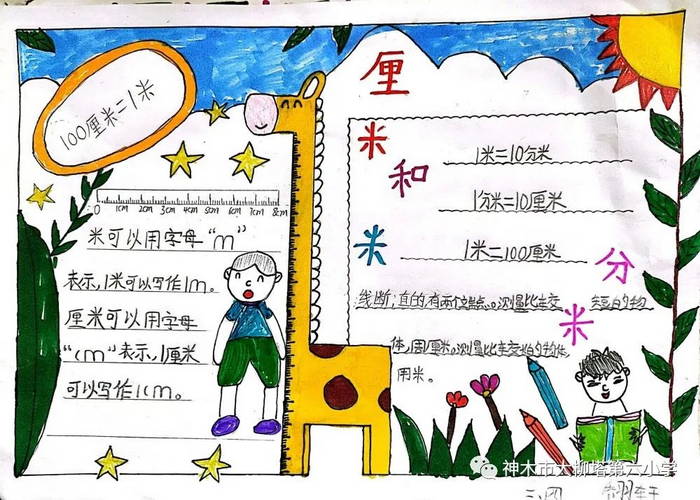 100厘米=1米
厘米和米
分米
0 1cm 2cm 3cm 4cm 5cm 6cm 7cm 8cm
米可以用字母“m”
表示，1米可以写作1m。
厘米可以用字母
“cm”表示，1厘米
可以写作1cm。
1米=10分米
1分米=10厘米
1米=100厘米
线断；直的，有两个端点。测量比
体，用厘米。测量比
用米。
神木市大柳塔第六小学